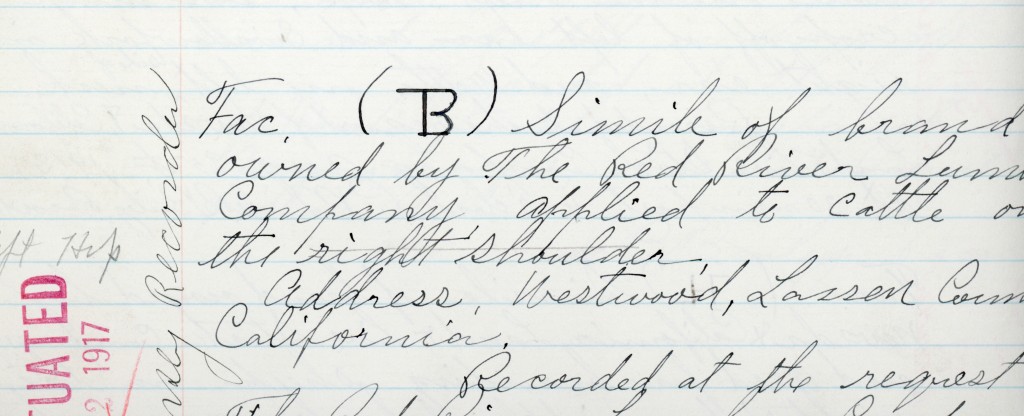 Fac. (TB) Simile of brand
owned by The Red River Lum
Company, applied to cattle on
the right shoulder,
Address, Westwood, Lassen Coun
California.
Recorded at the request
The Red
Recorder
Hip
TUATED
2 1917